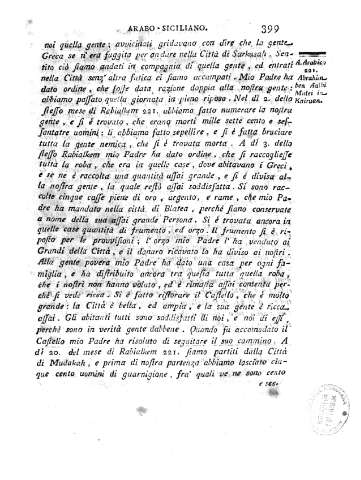 ARABO-SICILIANO. 399
noi quella gente; avvicinati gridavano con dire che la gente
Greca se n'era fuggita per andare nella Città di Sarkusah. Sen-
tito ciò siamo andati in compagnia di quella gente, ed entrati
nella Città senz'altra fatica ci siamo accampati. Mio Padre ha
dato ordine, che fosse data razione doppia alla nostra gente:
abbiamo passato quella giornata in pieno riposo. Nel dì 2. dello
stesso mese di Rabialkem 221. abbiamo fatto numerare la nostra
gente, e si è trovato, che erano morti mille sette cento e ses-
santatre uomini: li abbiamo fatto sepellire, e si è fatta bruciare
tutta la gente nemica, che si è trovata morta. A dì 3. dello
stesso Rabialkem mio Padre ha dato ordine, che si raccogliesse
tutta la roba, che era in quelle case, dove abitavano i Greci
e se ne è raccolta una quantità assai grande, e si è divisa al-
la nostra gente, la quale restò assai soddisfatta. Si sono rac-
colte cinque casse piene di oro, argento, e rame, che mio Pa-
dre ha mandato nella città di Blatea, perchè siano conservate
a nome della sua assai grande Persona. Si è trovata ancora in
quelle case quantità di frumento, ed orzo. Il frumento si è ri-
posto per le provvisioni; l'orzo mio Padre l'ha venduto ai
Grandi della Città, e il danaro ricavato lo ha diviso ai nostri.
Alla gente povera mio Padre ha dato una casa per ogni fa-
miglia, e ha distribuito ancora tra questa tutta quella roba,
che i nostri non hanno voluto, ed è rimasta assai contenta per-
chè si vede ricca. Si è fatto ristorare il Castello, che è molto
grande: la Città è bella, ed ampia, e la sua gente è ricca
assai. Gli abitanti tutti sono soddisfatti di noi, e noi di essi,
perchè sono in verità gente dabbene. Quando fu accomodato il
Castello mio Padre ha risoluto di seguitare il suo cammino. A
dì 20. del mese di Rabialkem 221. siamo partiti dalla Città
di Mudakah, e prima di nostra partenza abbiamo lasciato cin-
que cento uomini di guarnigione, fra' quali ve ne sono cento
e ses-
A. Arabico
221.
Abrahim
ben Aalbi
Mulei in
Kairuen.